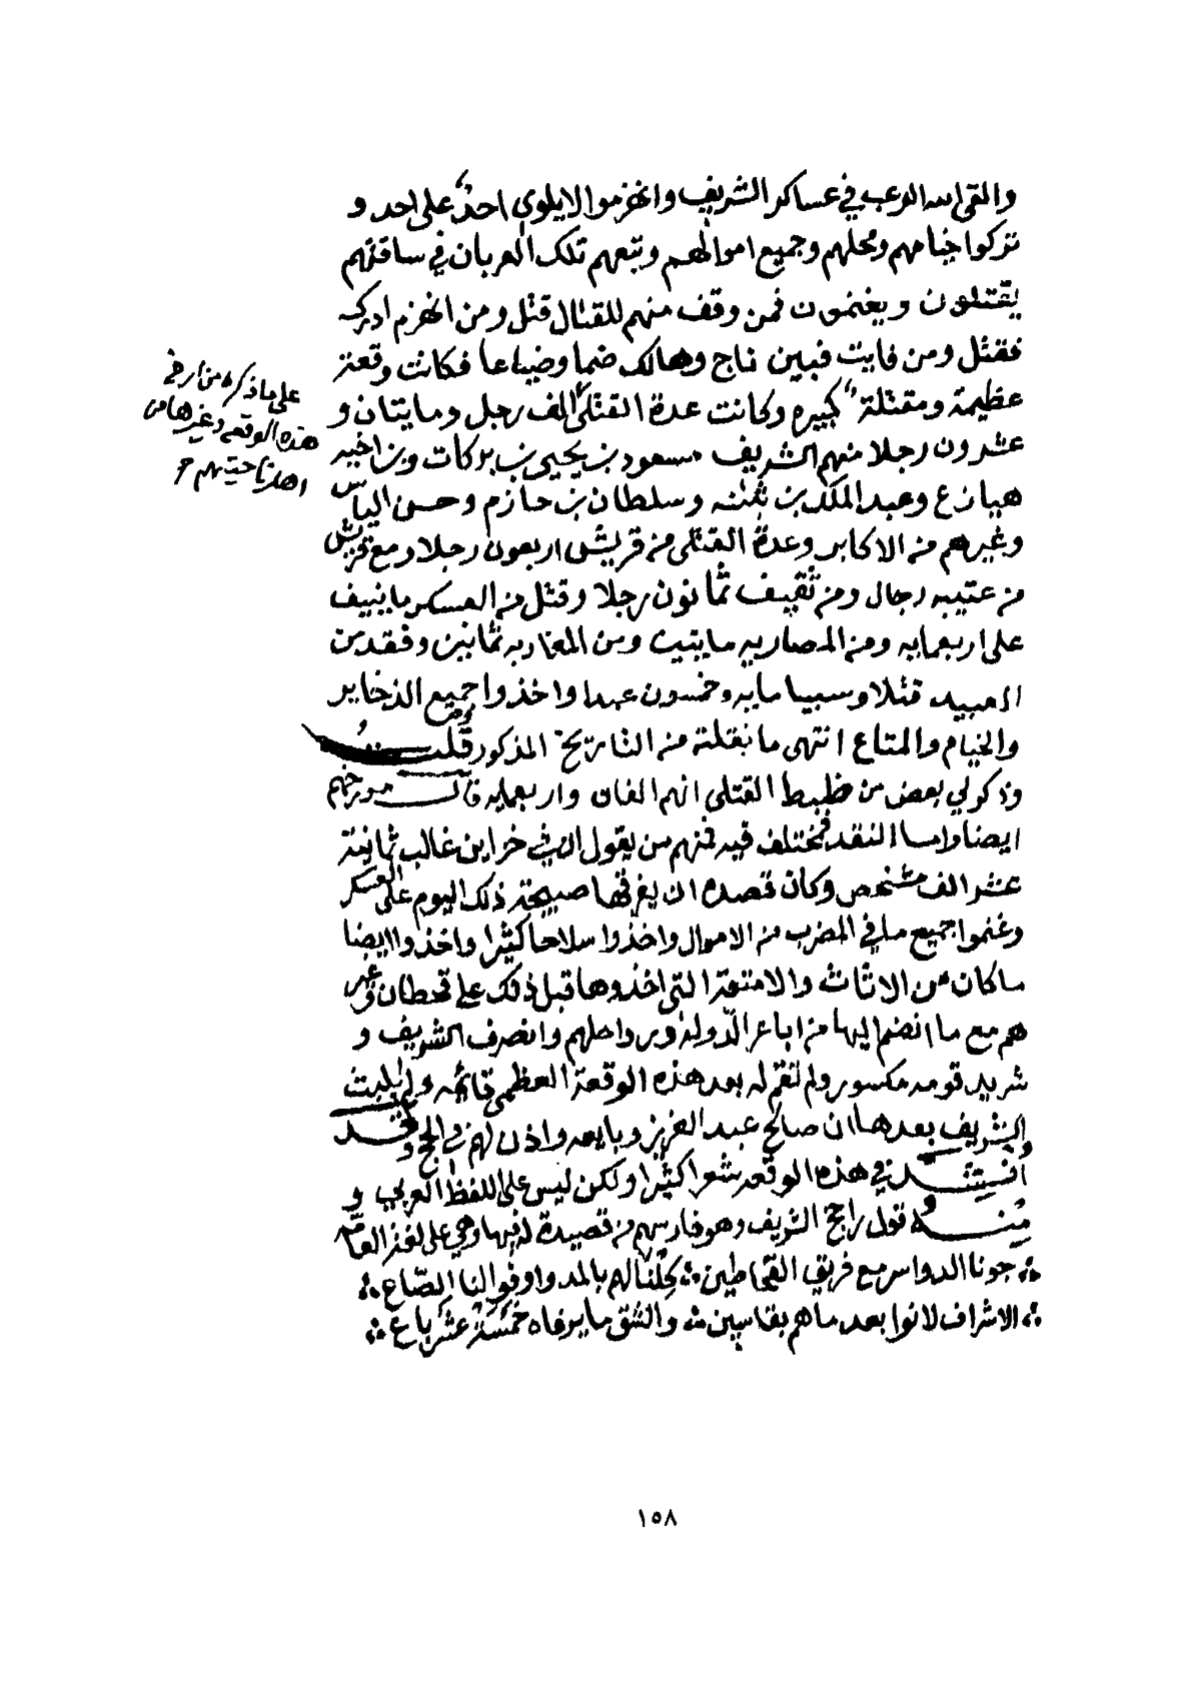 والقى الله الرعب في عساكر الشريف وانهزموا لا يلوي احدٌ على احد و
تركوا خيامهم ومحلهم وجميع اموالهم وتبعهم تلك العربان في ساقتهم
يقتلون ويغنمون فمن وقف منهم للقتال قتل ومن انهزم ادرك
فقتل ومن فايت فبين ناج وهالك ضما وضياعا فكانت وقعة
عظيمة ومقتلة كبيره وكانت عدة القتلى الف رجل ومايتان و
عشرون رجلا منهم الشريف مسعود بن يحيى بن بركات وبن اخيه
هيازع وعبد الملك بن ثقبه وسلطان بن حازم وحسن الياس
وغيرهم من الاكابر وعدة القتلى من قريش اربعون رجلا ومع قريش
من عتيبه رجال ومن ثقيف ثمانون رجلا وقتل من العسكر ما ينيف
على اربعمايه ومن المصاريه مايتين ومن المغاربه ثمانين وفقد من
العبيد قتلا وسبيا مايه وخمسون عبدا واخذوا جميع الذخاير
والخيام والمتاع انتهى ما نقلته من التاريخ المذكور قلت
وذكر لي بعض من ضبط القتلى انهم الفان واربعمايه قالت مورخهم
ايضا واما النقد فمختلف فيه فمنهم من يقول ان في خزاين غالب ثمانية
عشر الف مشخص وكان قصده ان يفرقها صبيحة ذلك اليوم على العسكر
وغنموا جميع ما في المضرب من الاموال واخذوا سلاحا كثيرا واخذوا ايضا
ما كان من الاثاث والامتعة التي اخذوها قبل ذلك على قحطان وغير
هم مع ما انضم اليها من اباعر الدولة ورواحلهم وانصرف الشريف و
شريد قومه مكسور ولم تقم له بعد هذه الوقعة العظمى قائمه ولم يلبث
الشريف بعدها ان صالح عبد العزيز وبايعه واذن لهم في الحج وقد
انشد في هذه الوقعه شعرا كثيرا ولكن ليس على اللفظ العربي و
منه قول راجح الشريف وهو فارسهم من قصيدة له فيها وهي على لغز العامه
جونا الدواسر مع فريق القحاطين كِلْنا لهم بالمد واوفوا لنا الصّاع
الاشراف لانوا بعد ما هم بقاسين والشق ما يرفاه خمسة عشر باع
على ما ذكره من ارخ
هذه الوقعه وغيرها من
اهل ناحيتهم
١٥٨